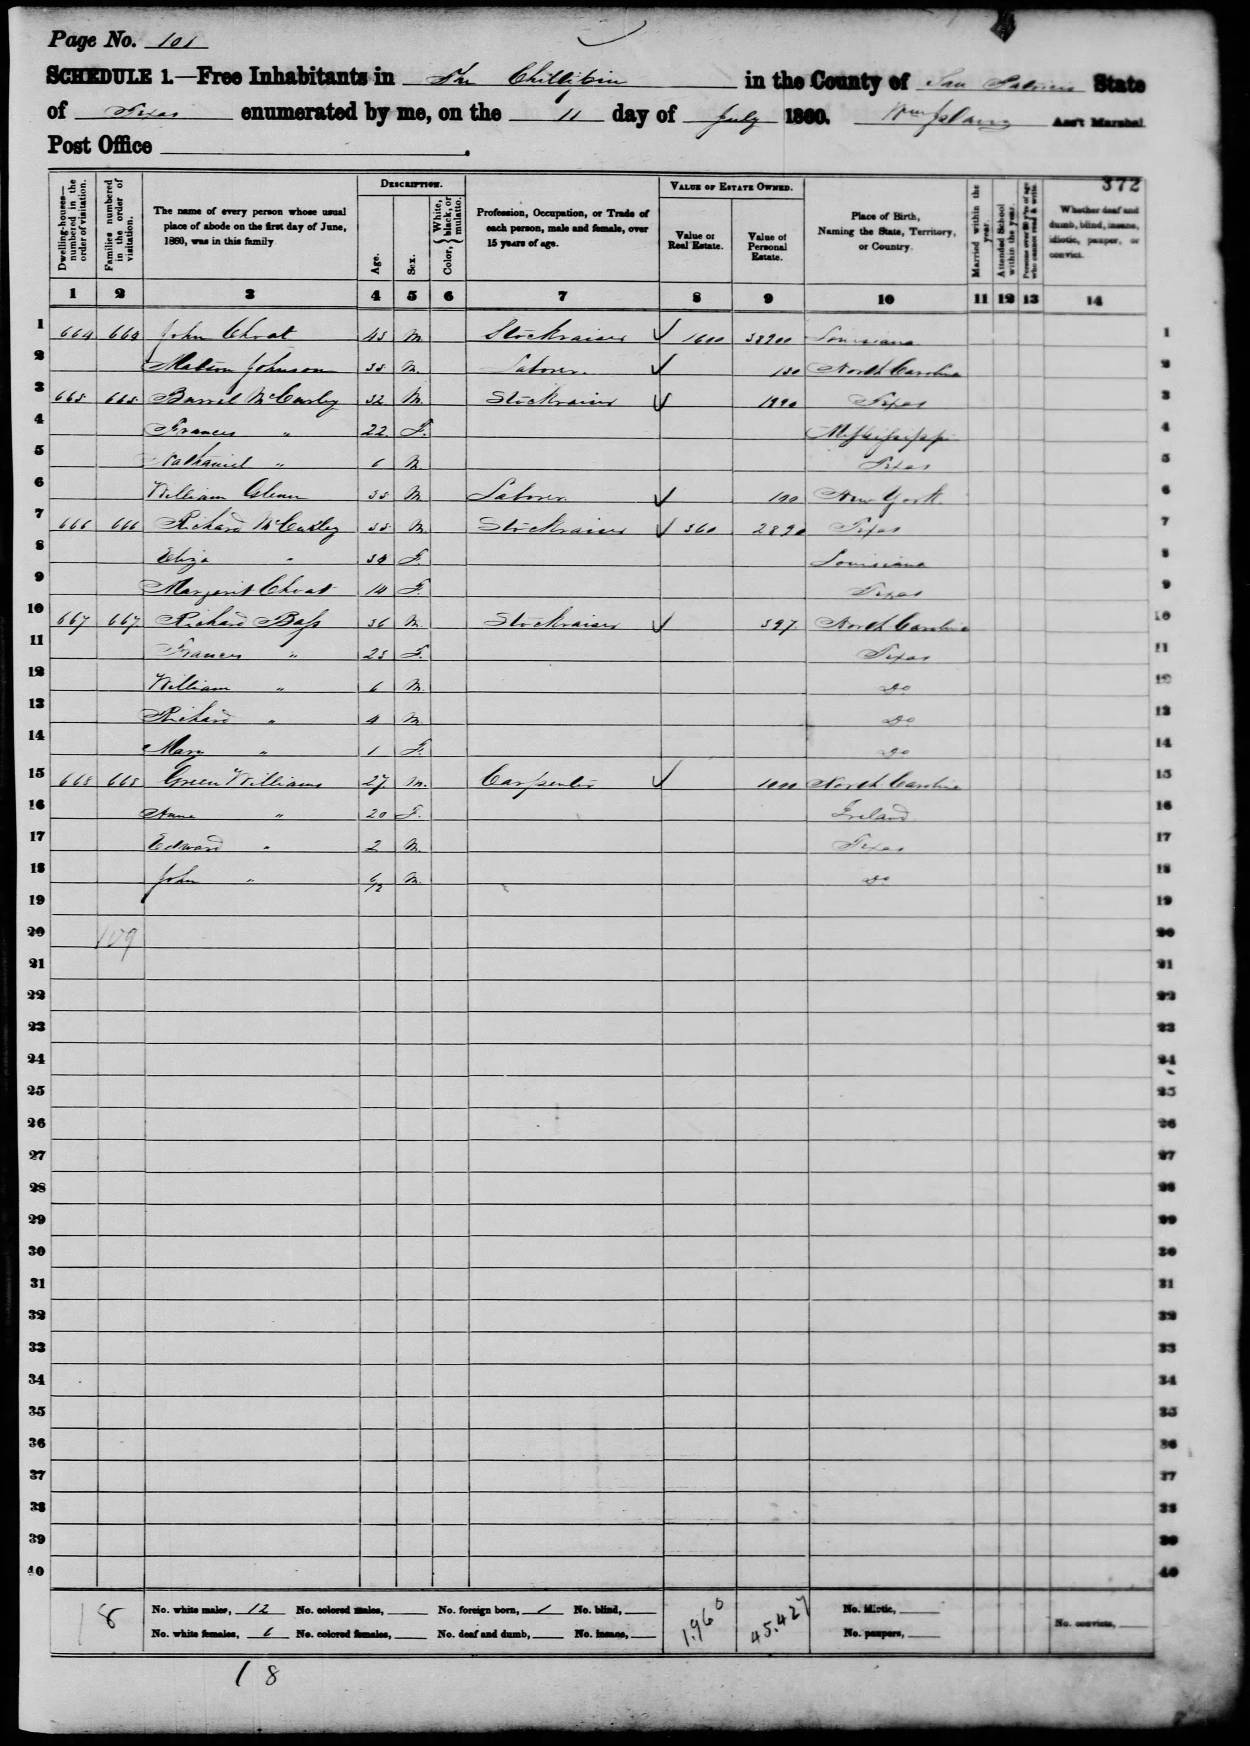 Page No. 101
SCHEDULE 1.—Free Inhabitants in The Chiltipin in the County of San Patricio State
of Texas enumerated by me, on the 11 day of July 1860. Ass't Marshal
Post Office
372
Dwelling-houses—numbered in the order of visitation.
Families numbered in the order of visitation.
The name of every person whose usual place of abode on the first day of June, 1860, was in this family.
DESCRIPTION.
Age.
Sex.
Color, White, black, or mulatto.
Profession, Occupation, or Trade of each person, male and female, over 15 years of age.
VALUE OF ESTATE OWNED.
Value of Real Estate.
Value of Personal Estate.
Place of Birth, Naming the State, Territory, or Country.
Married within the year.
Attended School within the year.
Persons over 20 y'rs of age who cannot read & write.
Whether deaf and dumb, blind, insane, idiotic, pauper, or convict.
1 2 3 4 5 6 7 8 9 10 11 12 13 14
1 664 664 John Choat 45 M Stockraiser 1600 Louisiana 1
2 Johnson M. Laborer North Carolina 2
3 665 665 McCarley 32 M. Stockraiser Texas 3
4 Frances " 22 F. Mississippi 4
5 Nathaniel " 6 M. Texas 5
6 William M Laborer 100 New York 6
7 666 666 Richard McCarley M. Stockraiser 360 Texas 7
8 Eliza " F. Louisiana 8
9 Margaret Choat 14 F. Texas 9
10 667 667 Richard Bass 36 M. Stockraiser North Carolina 10
11 Frances " F. Texas 11
12 William " 6 M. Do 12
13 Richard " 4 M. Do 13
14 Mary " 1 F. Do 14
15 668 668 Green Williams 27 M. Carpenter 1000 North Carolina 15
16 Anna " 20 F. Ireland 16
17 Edward " 2 M. Texas 17
18 John " 6/12 M. Do 18
19 19
20 109 20
21 21
22 22
23 23
24 24
25 25
26 26
27 27
28 28
29 29
30 30
31 31
32 32
33 33
34 34
35 35
36 36
37 37
38 38
39 39
40 40
18 No. white males, 12 No. colored males, No. foreign born, 1 No. blind, 1.960 45.427 No. idiotic,
No. white females, 6 No. colored females, No. deaf and dumb, No. insane, No. paupers, No. convicts,
18